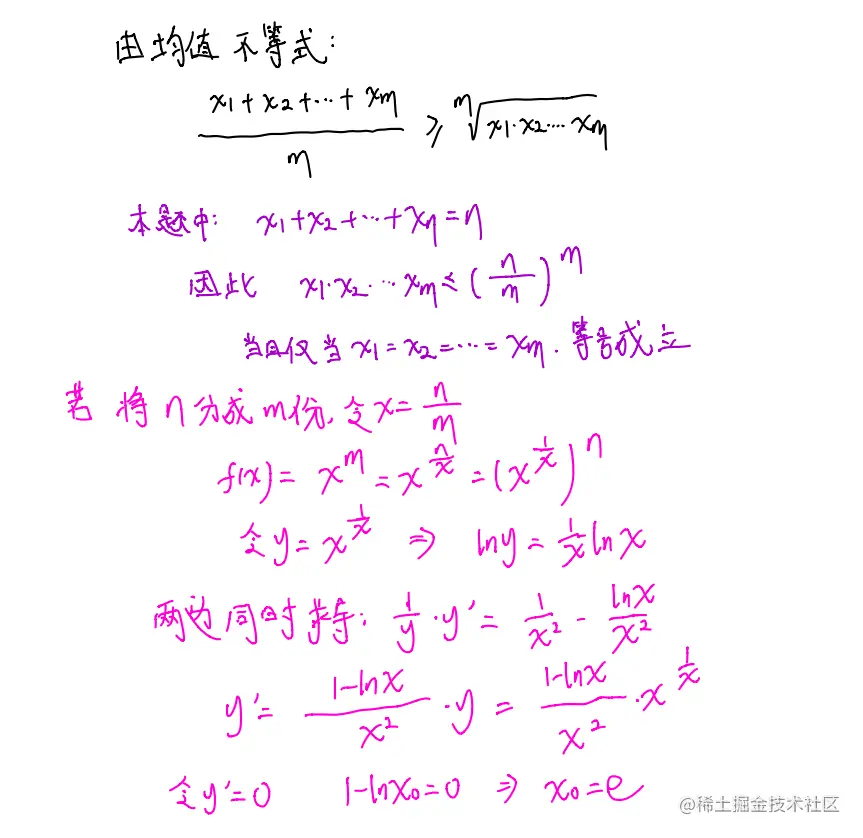 由均值不等式:
(x₁+x₂+⋯+xₘ)/m ≥ ᵐ√(x₁·x₂⋯xₘ)
本题中: x₁+x₂+⋯+xₘ=n
因此 x₁·x₂⋯xₘ≤(n/m)^m
当且仅当 x₁=x₂=⋯=xₘ. 等号成立
若将n分成m份,令x=n/m
f(x)=x^m=x^(n/x)=(x^(1/x))^n
令y=x^(1/x) ⇒ lny=(1/x)lnx
两边同时求导: (1/y)·y′=1/x²-lnx/x²
y′=((1-lnx)/x²)·y=((1-lnx)/x²)·x^(1/x)
令y′=0 1-lnx₀=0 ⇒ x₀=e
@稀土掘金技术社区